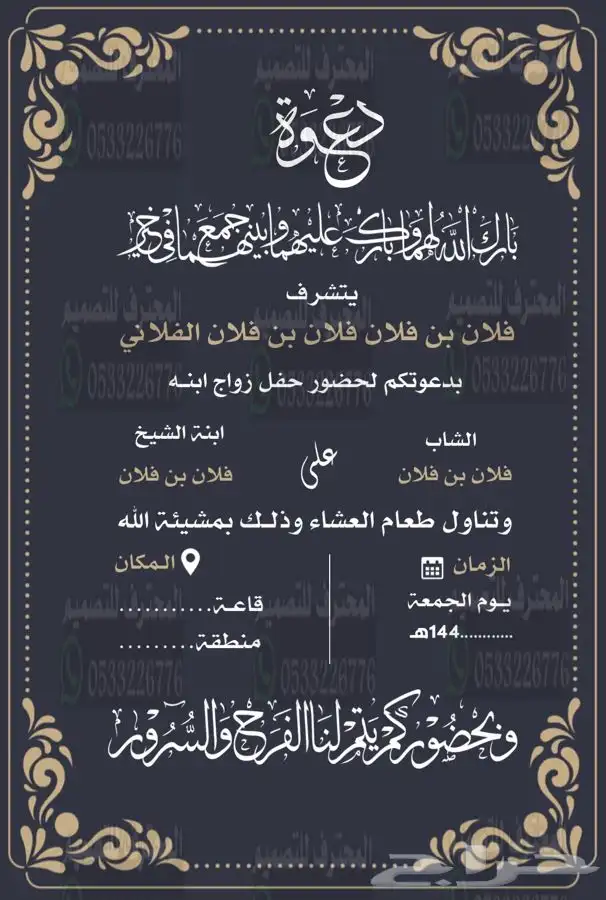 دعوة
بارك الله لهما وبارك عليهما وجمع بينهما في خير
يتشرف
فلان بن فلان فلان بن فلان الفلاني
بدعوتكم لحضور حفل زواج ابنه
الشاب
فلان بن فلان
على
ابنة الشيخ
فلان بن فلان
وتناول طعام العشاء وذلك بمشيئة الله
الزمان
يوم الجمعة
............144هـ
المكان
قاعة...........
منطقة.........
وبحضوركم يتم لنا الفرح والسرور
المحترف للتصميم
0533226776
حراج